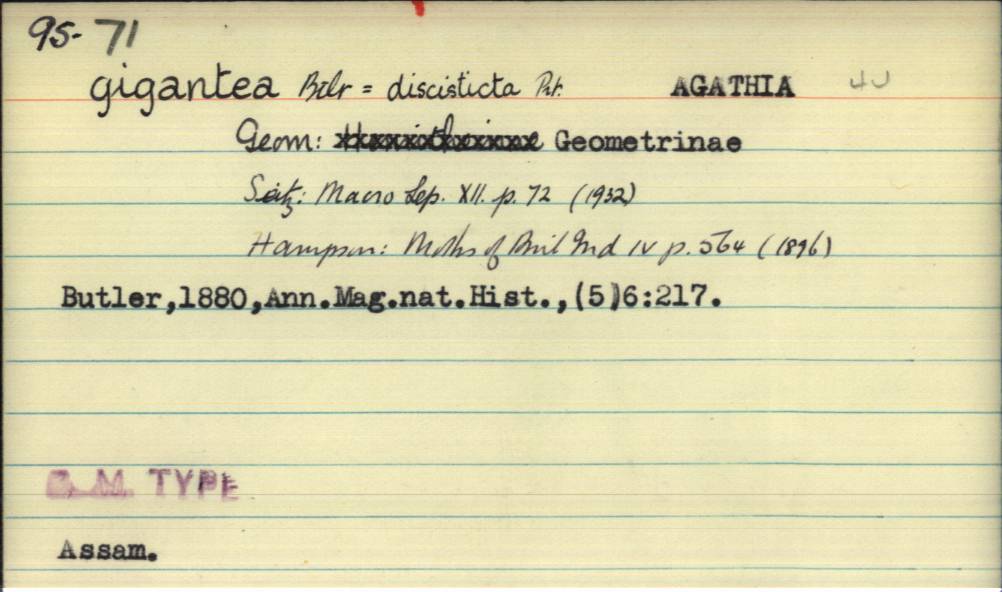 95-71
gigantea Btlr = discisticta Prt. AGATHIA 40
Geom: Geometrinae
Seitz: Macro Lep. XII. p. 72 (1932)
Hampson: Moths of Brit Ind IV p. 564 (1896)
Butler,1880,Ann.Mag.nat.Hist.,(5)6:217.
B. M. TYPE
Assam.